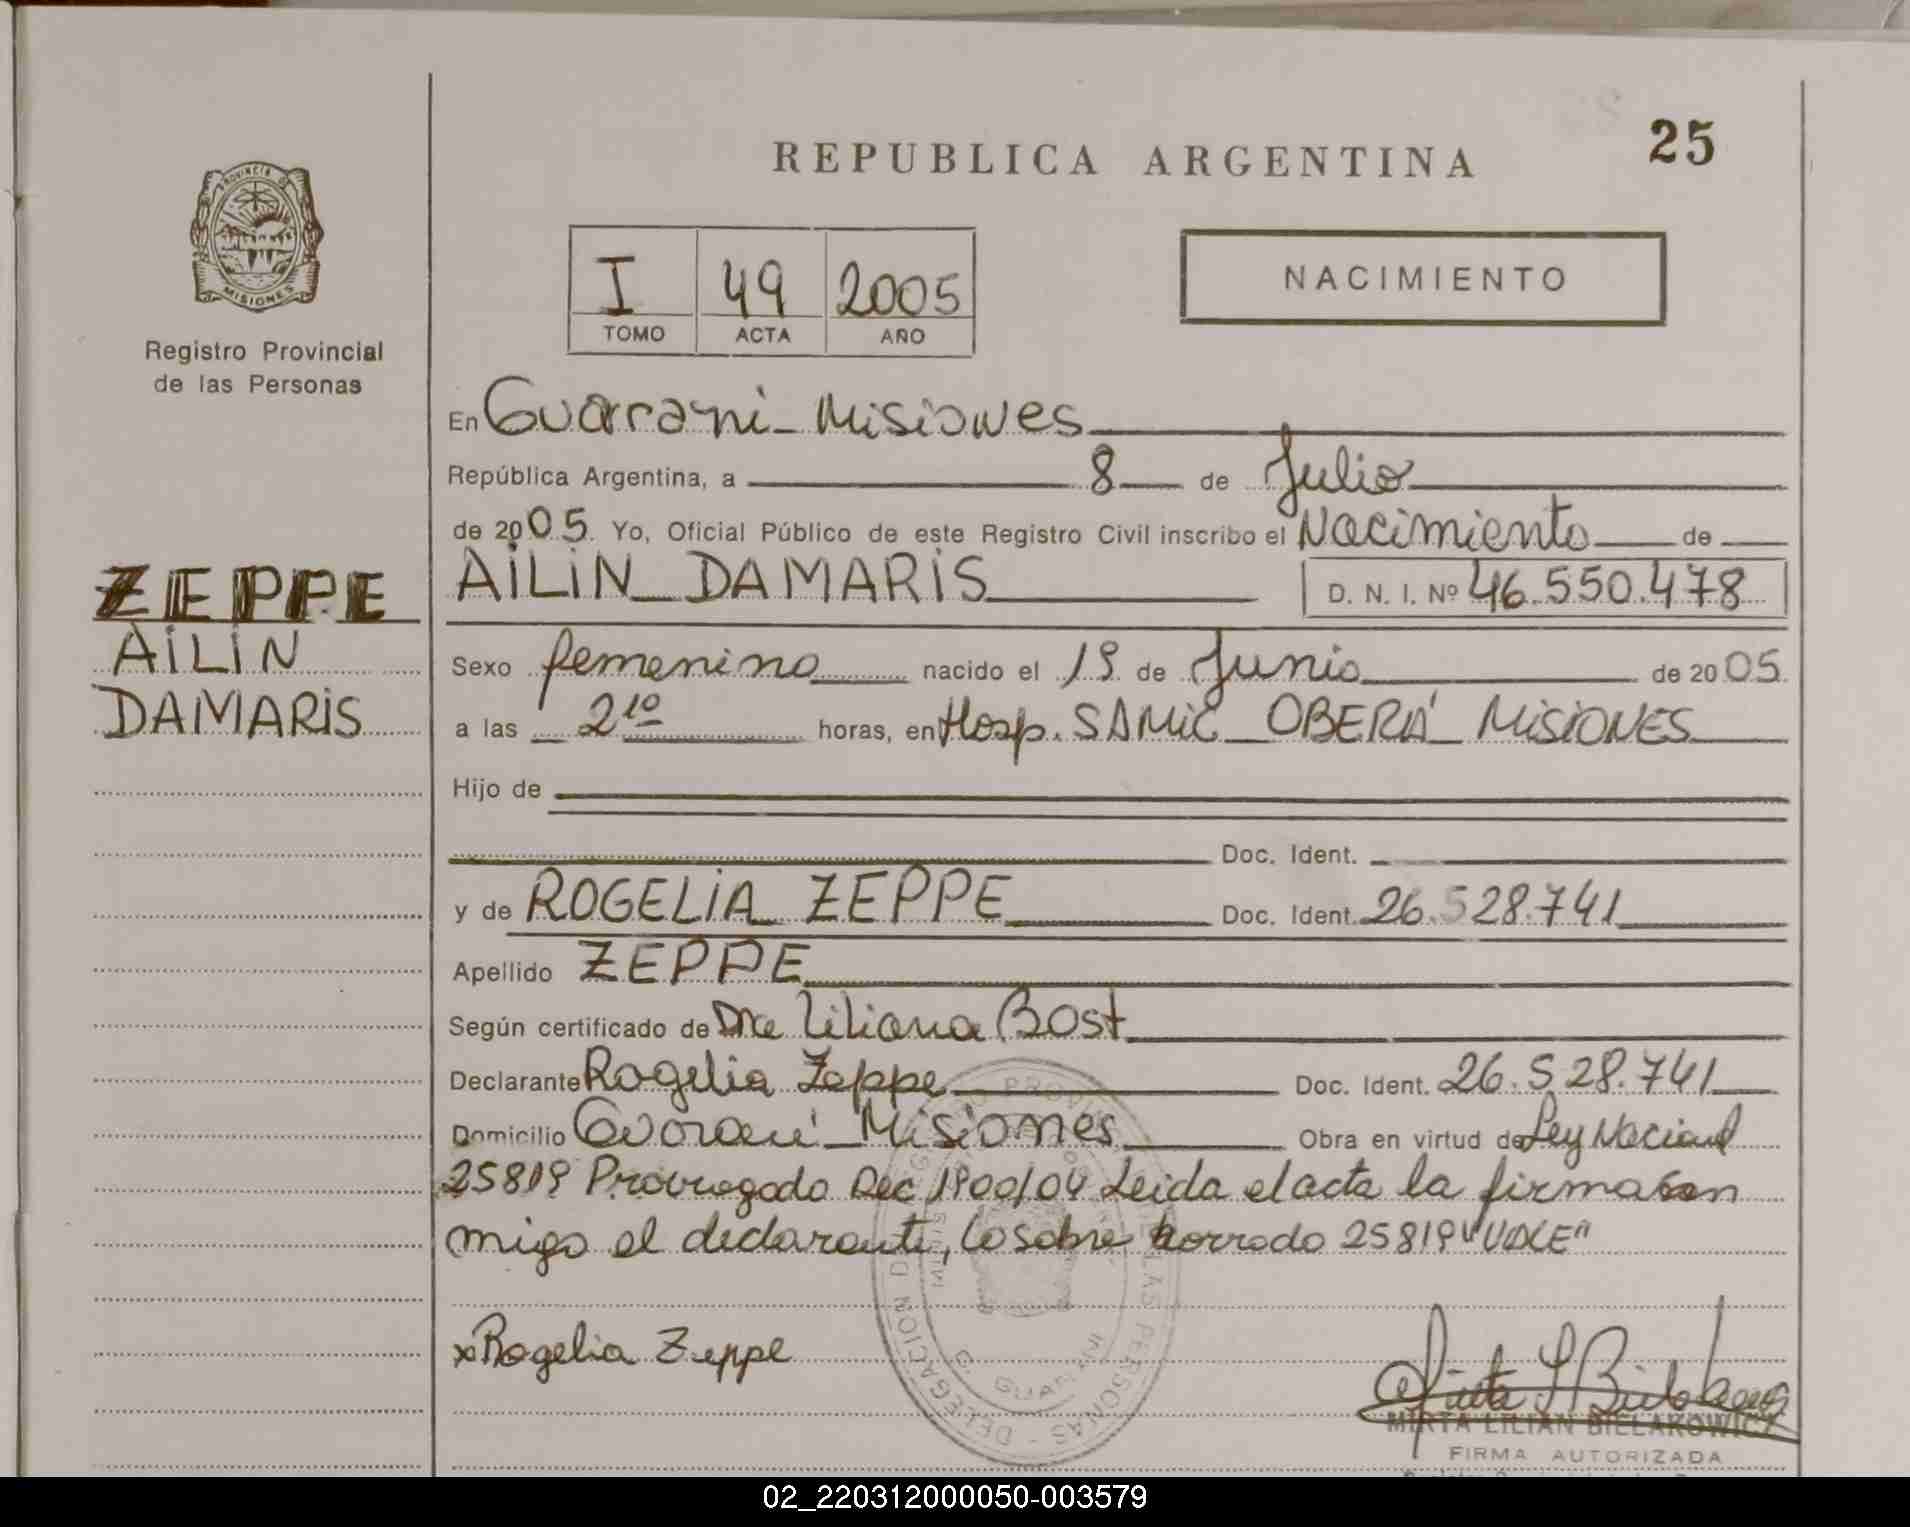 REPUBLICA ARGENTINA
25
PROVINCIA DE
MISIONES
Registro Provincial
de las Personas
I 49 2005
TOMO ACTA AÑO
NACIMIENTO
En Guarani - Misiones
República Argentina, a 8 de Julio
de 2005. Yo, Oficial Público de este Registro Civil inscribo el Nacimiento de
AILIN DAMARIS D. N. I. Nº 46.550.478
ZEPPE
AILIN
DAMARIS
Sexo femenino nacido el 19 de Junio de 2005.
a las 2¹⁰ horas, en Hosp. SAMIC OBERÁ MISIONES
Hijo de
Doc. Ident.
y de ROGELIA ZEPPE Doc. Ident. 26.528.741
Apellido ZEPPE
Según certificado de Dra Liliana Bost
Declarante Rogelia Zeppe Doc. Ident. 26.528.741
Domicilio Guarani Misiones Obra en virtud de Ley Nacional
25819 Prorrogado Dec 1900/04 Leida el acta la firma con
migo el declarante, lo sobre borrado 25819 "VALE"
x Rogelia Zeppe
MIRTA LILIAN BIELAKOWICZ
FIRMA AUTORIZADA
02_220312000050-003579